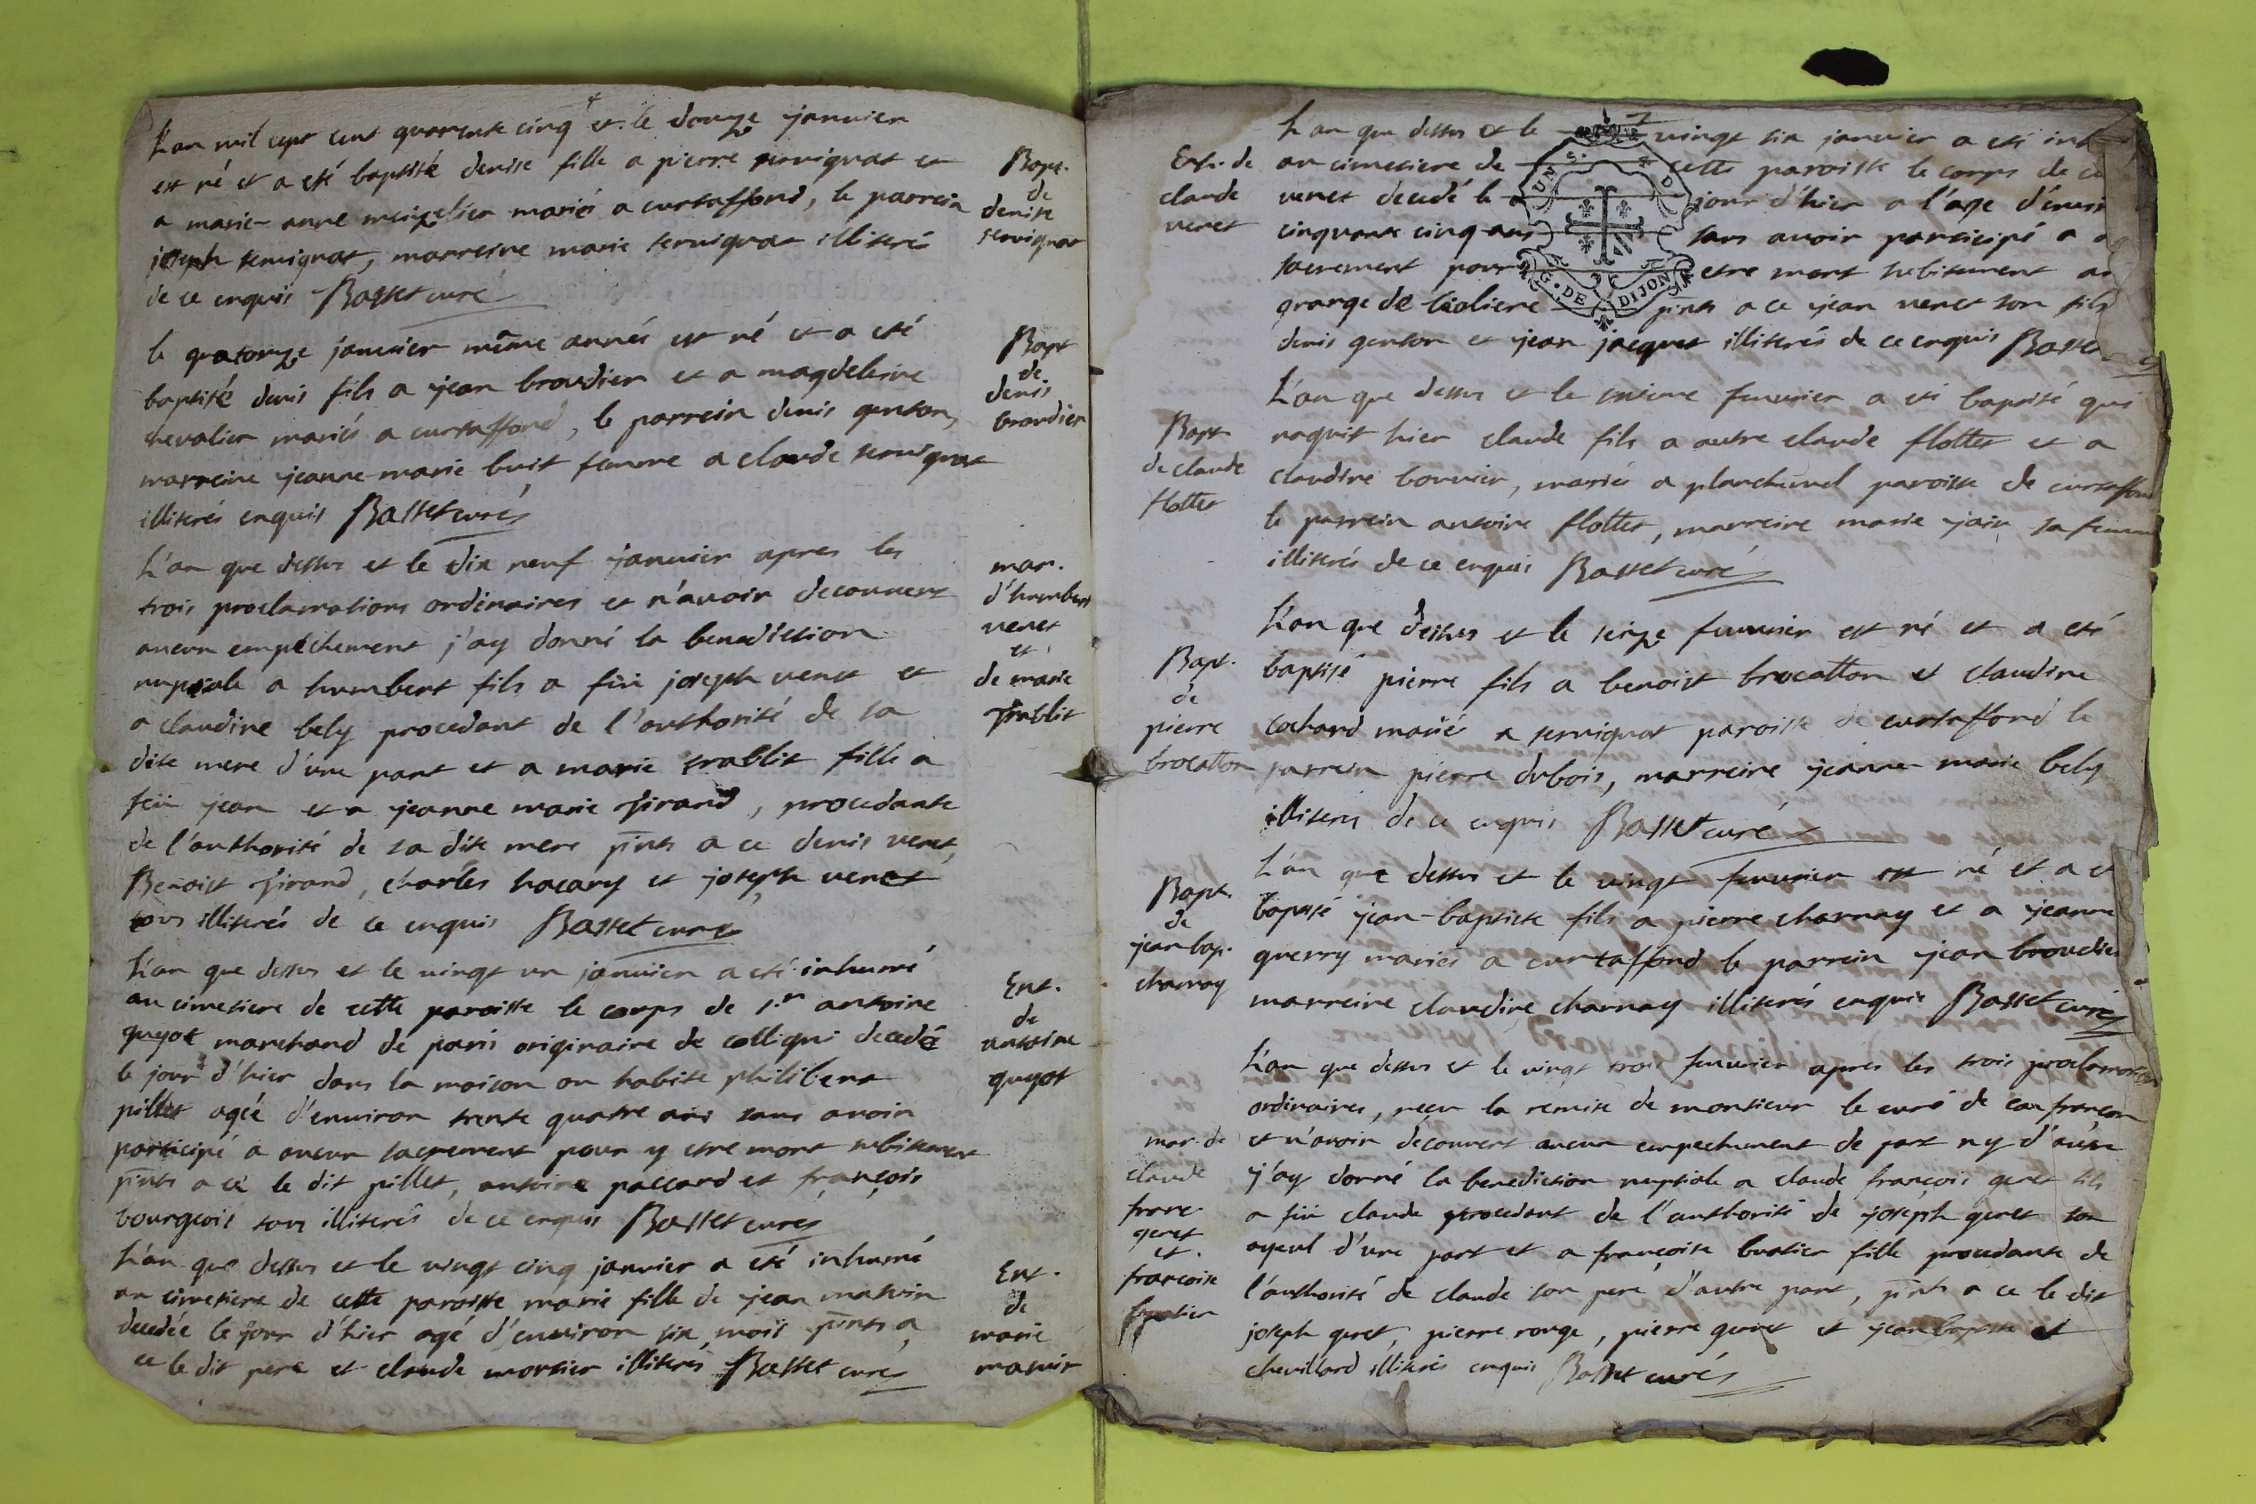 L'an mil sept cent quarante cinq et le douze janvier
est né et a eté baptisé denise fille a pierre servignat et
a marie-anne meizelier mariés a curtaffond, le parrein
joseph servignat, marreine marie servignat illiterés
de ce enquis Basset curé
Bapt.
de
denise
servignat
le quatorze janvier même année est né et a eté
baptisé denis fils a jean broudier et a magdeleine
chevalier mariés a curtaffond, le parrein denis genton,
marreine jeanne-marie buit femme a claude servignat
illiterés enquis Basset curé
Bapt
de
denis
broudier
L'an que dessus et le dix neuf janvier apres les
trois proclamations ordinaires et n'avoir decouvert
aucun empéchement j'ay donné la benediction
nuptiale a humbert fils a fëu joseph venet et
a claudine bely procedant de l'authorité de sa
dite mere d'une part et a marie trablit fille a
fëu jean et a jeanne marie Tirand, procedante
de l'authorité de sa dite mere pnts a ce denis venet,
Benoist Tirand, charles hacary et joseph venet
tous illiterés de ce enquis Basset curé
mar.
d'humbert
venet
et
de marie
Trablit
L'an que dessus et le vingt un janvier a eté inhumé
au cimetiere de cette paroisse le corps de sr antoine
guyot marchand de paris originaire de colligni decedé
le jour d'hier dans la maison ou habite philibert
pillet agée d'environ trente quatre ans sans avoir
participé a aucun sacrement pour y etre mort subitement
pnts a ce le dit pillet, antoine paccard et françois
bourgeois tous illiterés de ce enquis Basset curé
Ent.
de
antoine
guyot
L'an que dessus et le vingt cinq janvier a eté inhumé
au cimetiere de cette paroisse marie fille de jean mawin
decedée le jour d'hier agé d'environ six mois pnts a
ce le dit pere et claude mortier illiterés Basset curé
Ent.
de
marie
L'an que dessus et le vingt six janvier a eté
au cimetiere de cette paroisse le corps de
venet decedé le jour d'hier a l'age d'envir
cinquante cinq ans sans avoir participé a
sacrement pour etre mort subitement
grange de pnts a ce jean venet son fils
denis genton et jean jacquet illiterés de ce enquis Basset
Ent. de
claude
venet
UN S. D
G. DE DIJON
L'an que dessus et le onzieme fevrier a eté baptisé qui
naquit hier claude fils a autre claude flottet et a
claudine bouvier, mariés a plancheuel paroisse de curtaffond
le parrein antoine flottet, marreine marie join sa femme
illiterés de ce enquis Basset curé
Bapt
de claude
flottet
L'an que dessus et le seize fevrier est né et a eté
baptisé pierre fils a benoist brocatton et claudine
cochard mariés a servignat paroisse de curtaffond le
parrein pierre dubois, marreine jeanne marie bely
illiterés de ce enquis Basset curé
Bapt.
de
pierre
brocatton
L'an que dessus et le vingt fevrier est né et a et
baptisé jean-baptiste fils a pierre charnay et a jeanne
guerry mariés a curtaffond le parrein jean broudier
marreine claudine charnay illiterés enquis Basset curé
Bapt.
de
jean bap.
charnay
L'an que dessus et le vingt trois fevrier apres les trois proclamations
ordinaires, reçu la remise de monsieur le curé de confrançon
et n'avoir decouvert aucun empechement de part ny d'autre
j'ay donné la benediction nuptiale a claude françois geret fils
a fëu claude procedant de l'authorité de joseph geret son
ayeul d'une part et a françoise buatier fille procedante de
l'authorité de claude son pere d'autre part, pnts a ce le dit
joseph geret, pierre rouge, pierre geret et jean baptiste
chevillard illiterés enquis Basset curé
mar. de
claude
franc.
geret
et
françoise
buatier